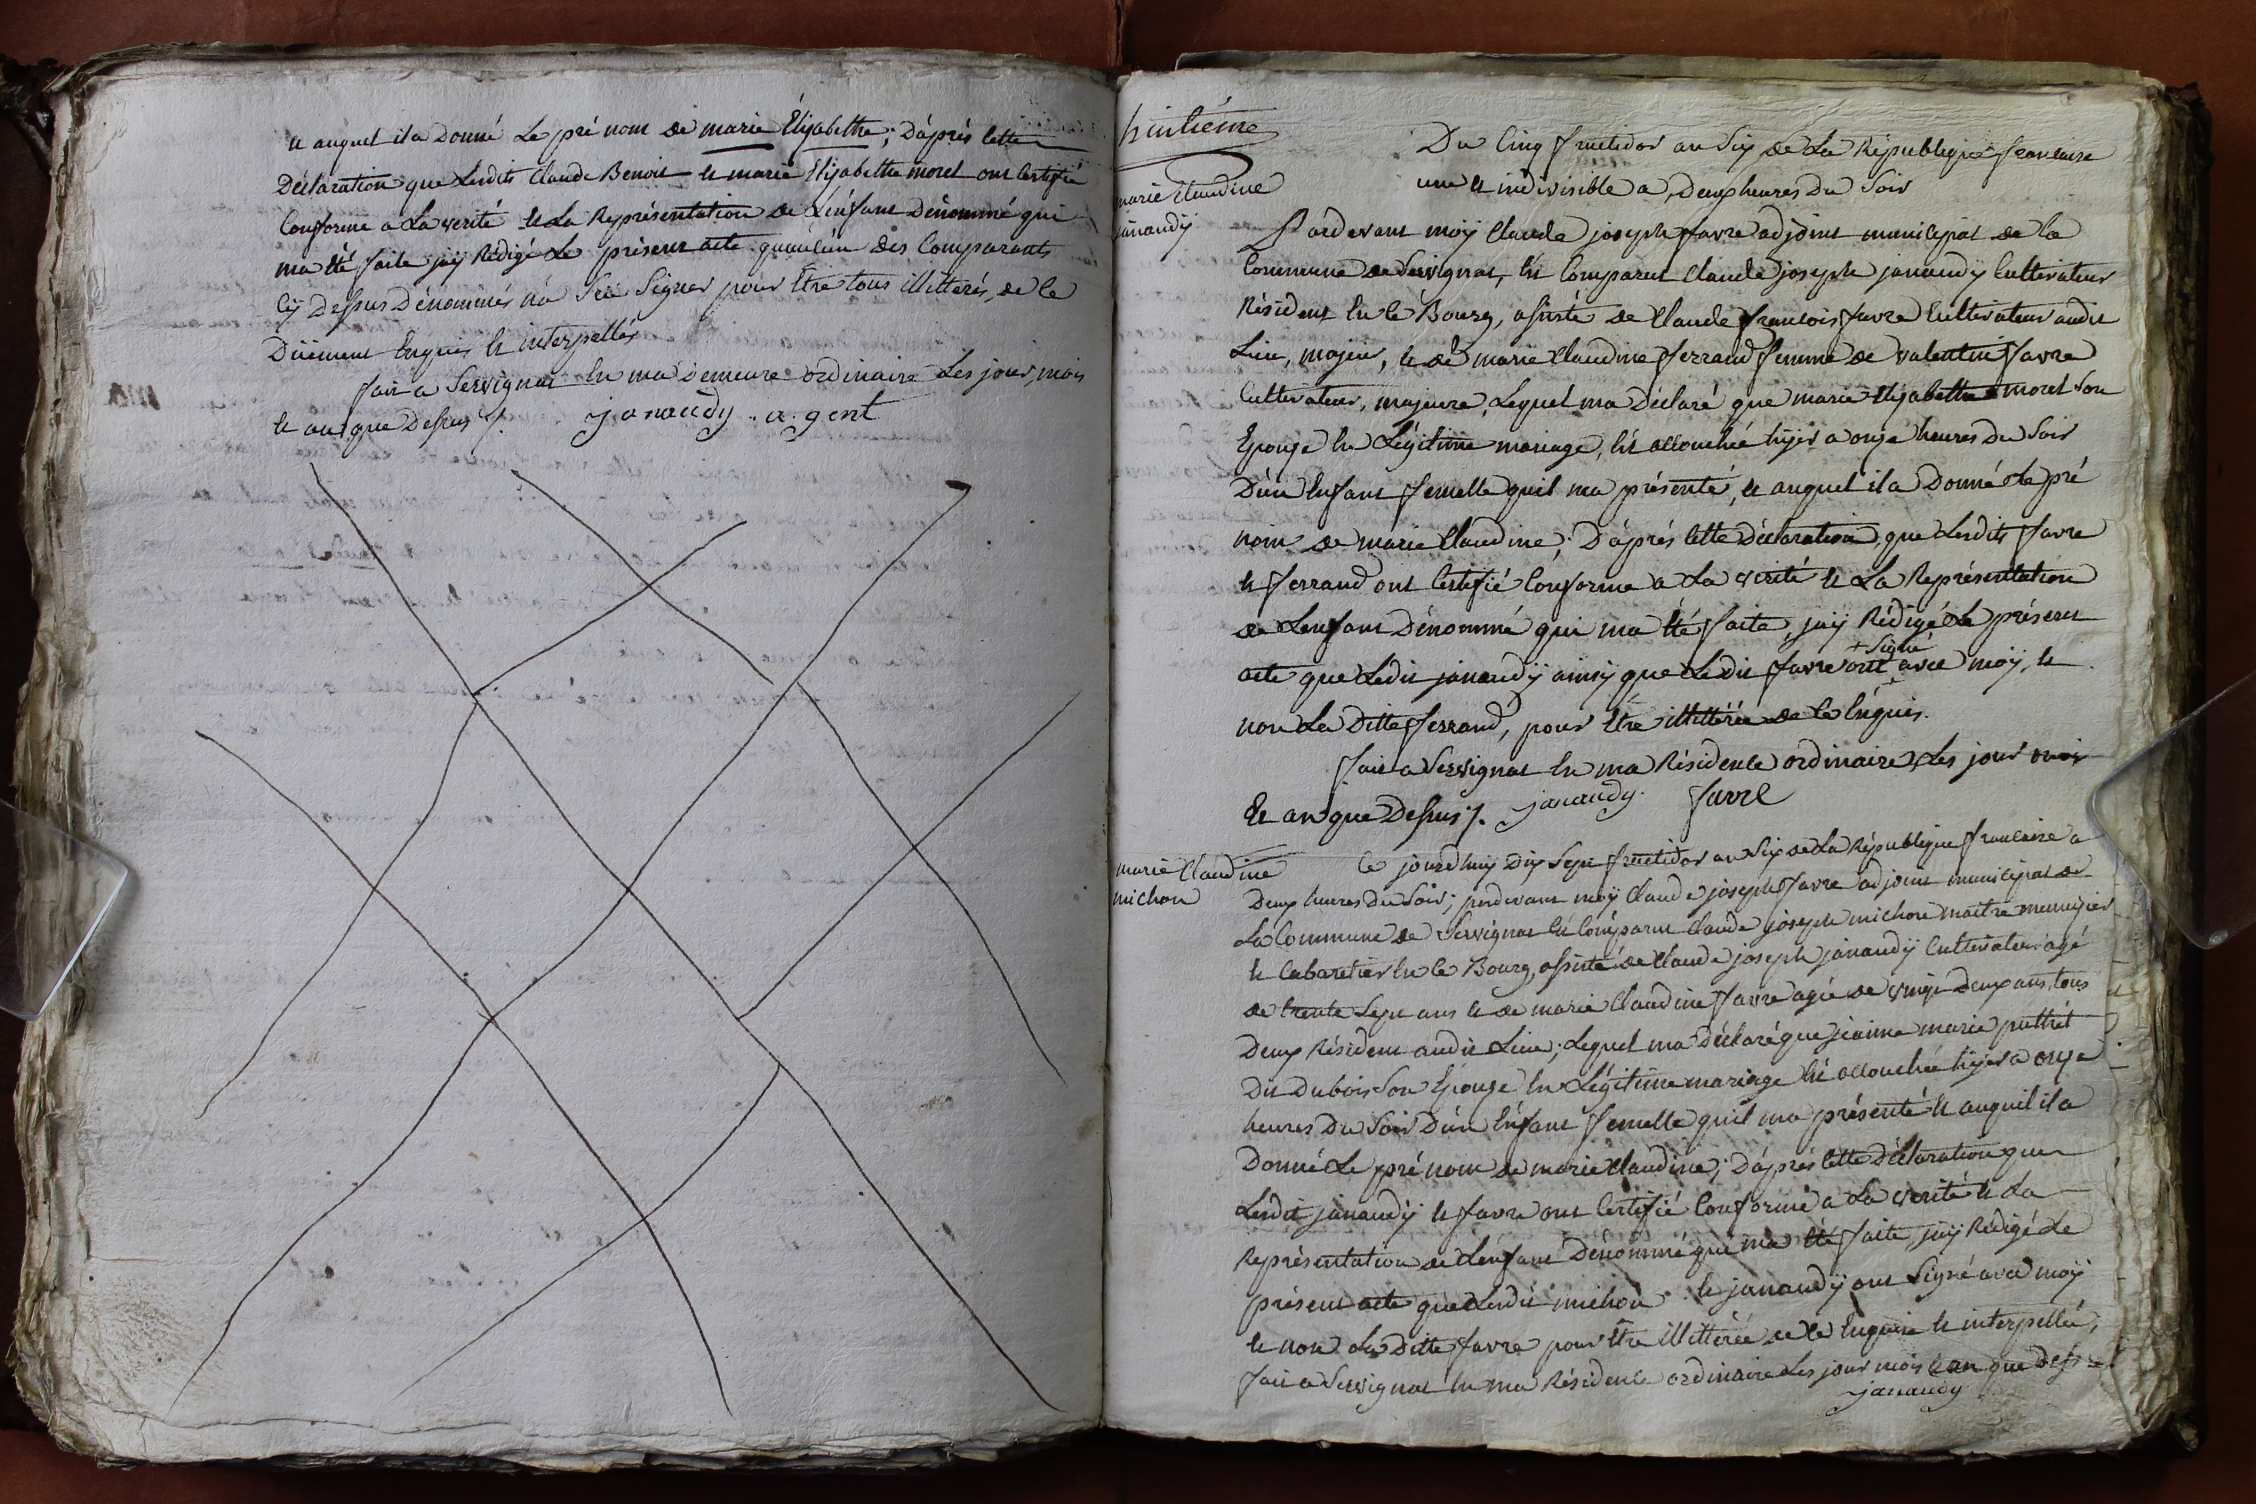 et auquel il a Donné Le pré nom de marie Élizabethe; D'après cette
Déclaration que Lesdits Claude Benoit et marie Elizabethe morel ont Certifié
Conforme a La verité et La Représentation de L'énfant Dénommé qui
ma été faite jaÿ Rédigé Le présent acte qu'aucun des Comparants
Cÿ Dessus Dénommés na Sçu Signer pour Etre tous illitterés, de ce
Düement Enquis et interpellés
fait a Servignat En ma Demeure ordinaire Les jour, mois
et an que Dessus /.
janaudy . agent
huitième
Du Cinq fructidor an Six de La République francaise
une et indivisible a Deux heures Du Soir
marie Claudine
janaudÿ
Pardevant moÿ Claude joseph favre adjoint municipal de la
Commune de Servignat, Est Comparut Claude joseph janaudÿ Cultivateur
Résident En le Bourg, assisté de Claude francois favre Cultivateur audit
Lieu, majeur, et de marie Claudine ferrand femme de valentin favre
Cultivateur, majeure, Lequel ma Déclaré que marie Elizabethe morel Son
Epouze En Légitime mariage, Est accouchée hÿer a onze heures Du Soir
D'ün Enfant femelle quil ma présenté, et auquel il a Donné Le pré
nom de marie Claudine; D'après cette Déclaration que Lesdits favre
et ferrand ont Certifié Conforme a La verité et La Représentation
de L'enfant Dénommé qui ma Eté faite, jaÿ Rédigé Le présent
+ Signé
acte que Ledit janaudÿ ainsÿ que Ledit favre ont + avec moÿ, et
non La Ditte ferrand, pour Etre illittérée de ce Enquis.
fait a Servignat En ma Résidence ordinaire, Les jour mois
Et an que Dessus /. janaudy. favre
marie Claudine
michon
Ce jourd'huÿ Dix Sept fructidor an Six de La République francaise a
Deux heures Du Soir; pardevant moÿ Claude joseph favre adjoint municipal de
La Commune de Servignat Est Comparut Claude joseph michon maitre menuizier
et Cabaretier En le Bourg, assisté de Claude joseph janaudÿ Cultivateur agé
de trente Sept ans et de marie Claudine favre agée de vingt Deux ans, tous
Deux Résident audit Lieu; Lequel ma Déclaré que jeanne marie puthet
Dit Dubois Son Epouze En Légitime mariage Est accouchée hÿer a onze
heures Du Soir D'ün Enfant femelle quil ma présenté et auquel il a
Donné Le pré nom de marie Claudine; D'après cette Déclaration que
Lesdit janaudÿ et favre ont Certifié Conforme a La verité et La
Représentation de L'enfant Dénommé qui ma Eté faite, jaÿ Rédigé Le
présent acte que Lesdit michon et janaudÿ ont Signé avec moÿ
et non La Ditte favre pour Etre illittérée de ce Enquise et interpellée,
fait a Servignat En ma Résidence ordinaire Les jour mois et an que dessus
janaudy